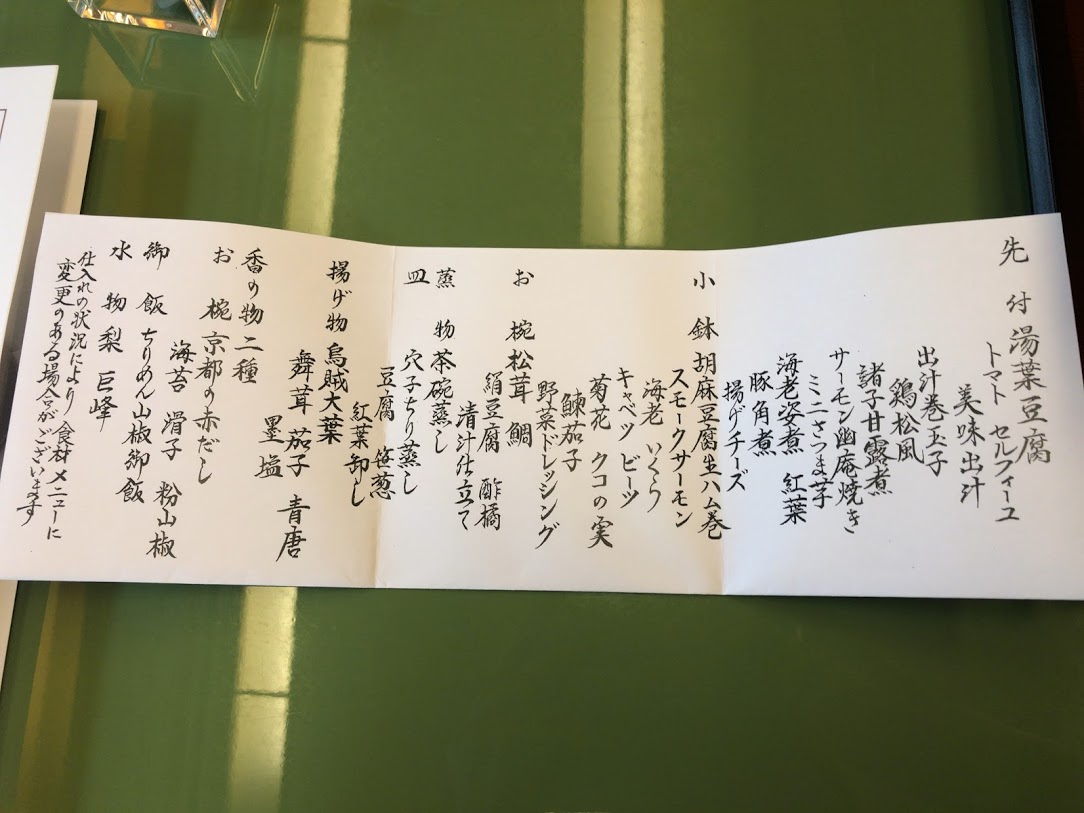 先付 湯葉豆腐
トマト セルフィーユ
美味出汁
出汁巻玉子
鶏松風
諸子甘露煮
サーモン幽庵焼き
ミニさつま芋
海老姿煮 紅葉
豚角煮
揚げチーズ
小鉢 胡麻豆腐生ハム巻
スモークサーモン
海老 いくら
キャベツ ビーツ
菊花 クコの実
鰊茄子
野菜ドレッシング
お椀 松茸 鯛
絹豆腐 酢橘
清汁仕立て
蒸物 茶碗蒸し
皿 穴子ちり蒸し
豆腐 笹葱
紅葉卸し
揚げ物 烏賊大葉
舞茸 茄子 青唐
墨塩
香の物 二種
お椀 京都の赤だし
海苔 滑子 粉山椒
御飯 ちりめん山椒御飯
水物 梨 巨峰
仕入れの状況により食材メニューに
変更のある場合がございます